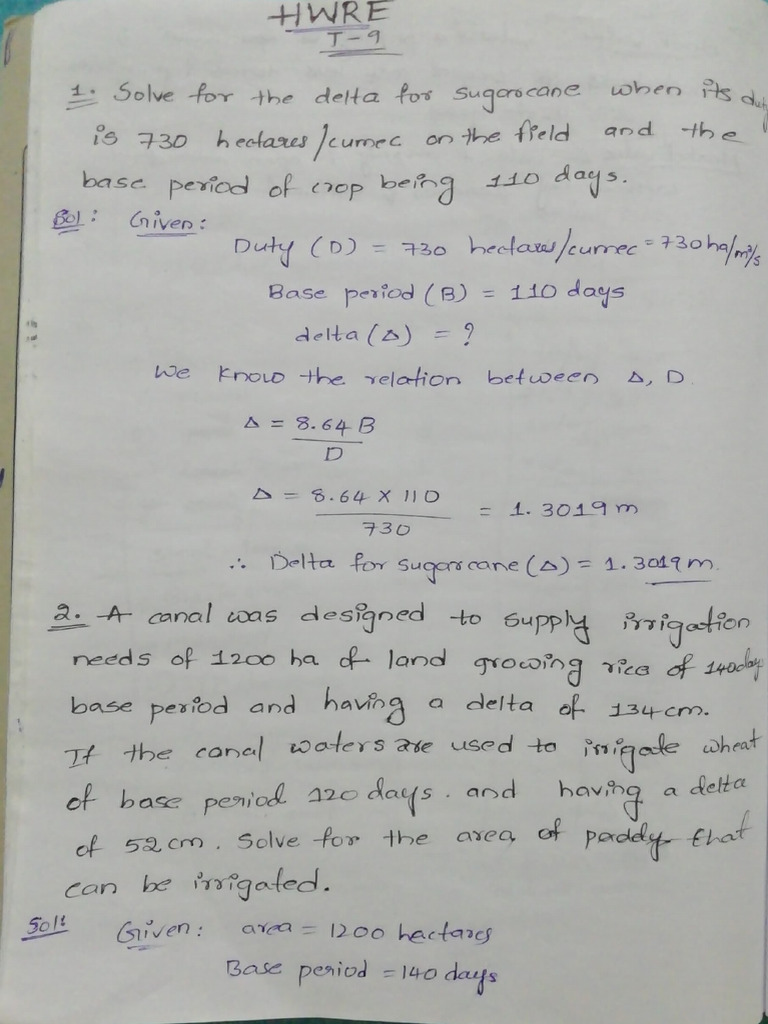 HWRE
T-9
1. Solve for the delta for sugarcane when its duty
is 730 hectares/cumec on the field and the
base period of crop being 110 days.
Sol: Given:
Duty (D) = 730 hectares/cumec = 730 ha/m³/s
Base period (B) = 110 days
delta (Δ) = ?
We know the relation between Δ, D.
Δ = 8.64 B
D
Δ = 8.64 X 110 = 1.3019 m
730
∴ Delta for sugarcane (Δ) = 1.3019 m.
2. A canal was designed to supply irrigation
needs of 1200 ha of land growing rice of 140 day
base period and having a delta of 134 cm.
If the canal waters are used to irrigate wheat
of base period 120 days. and having a delta
of 52 cm. Solve for the area of paddy that
can be irrigated.
Sol: Given: area = 1200 hectares
Base period = 140 days